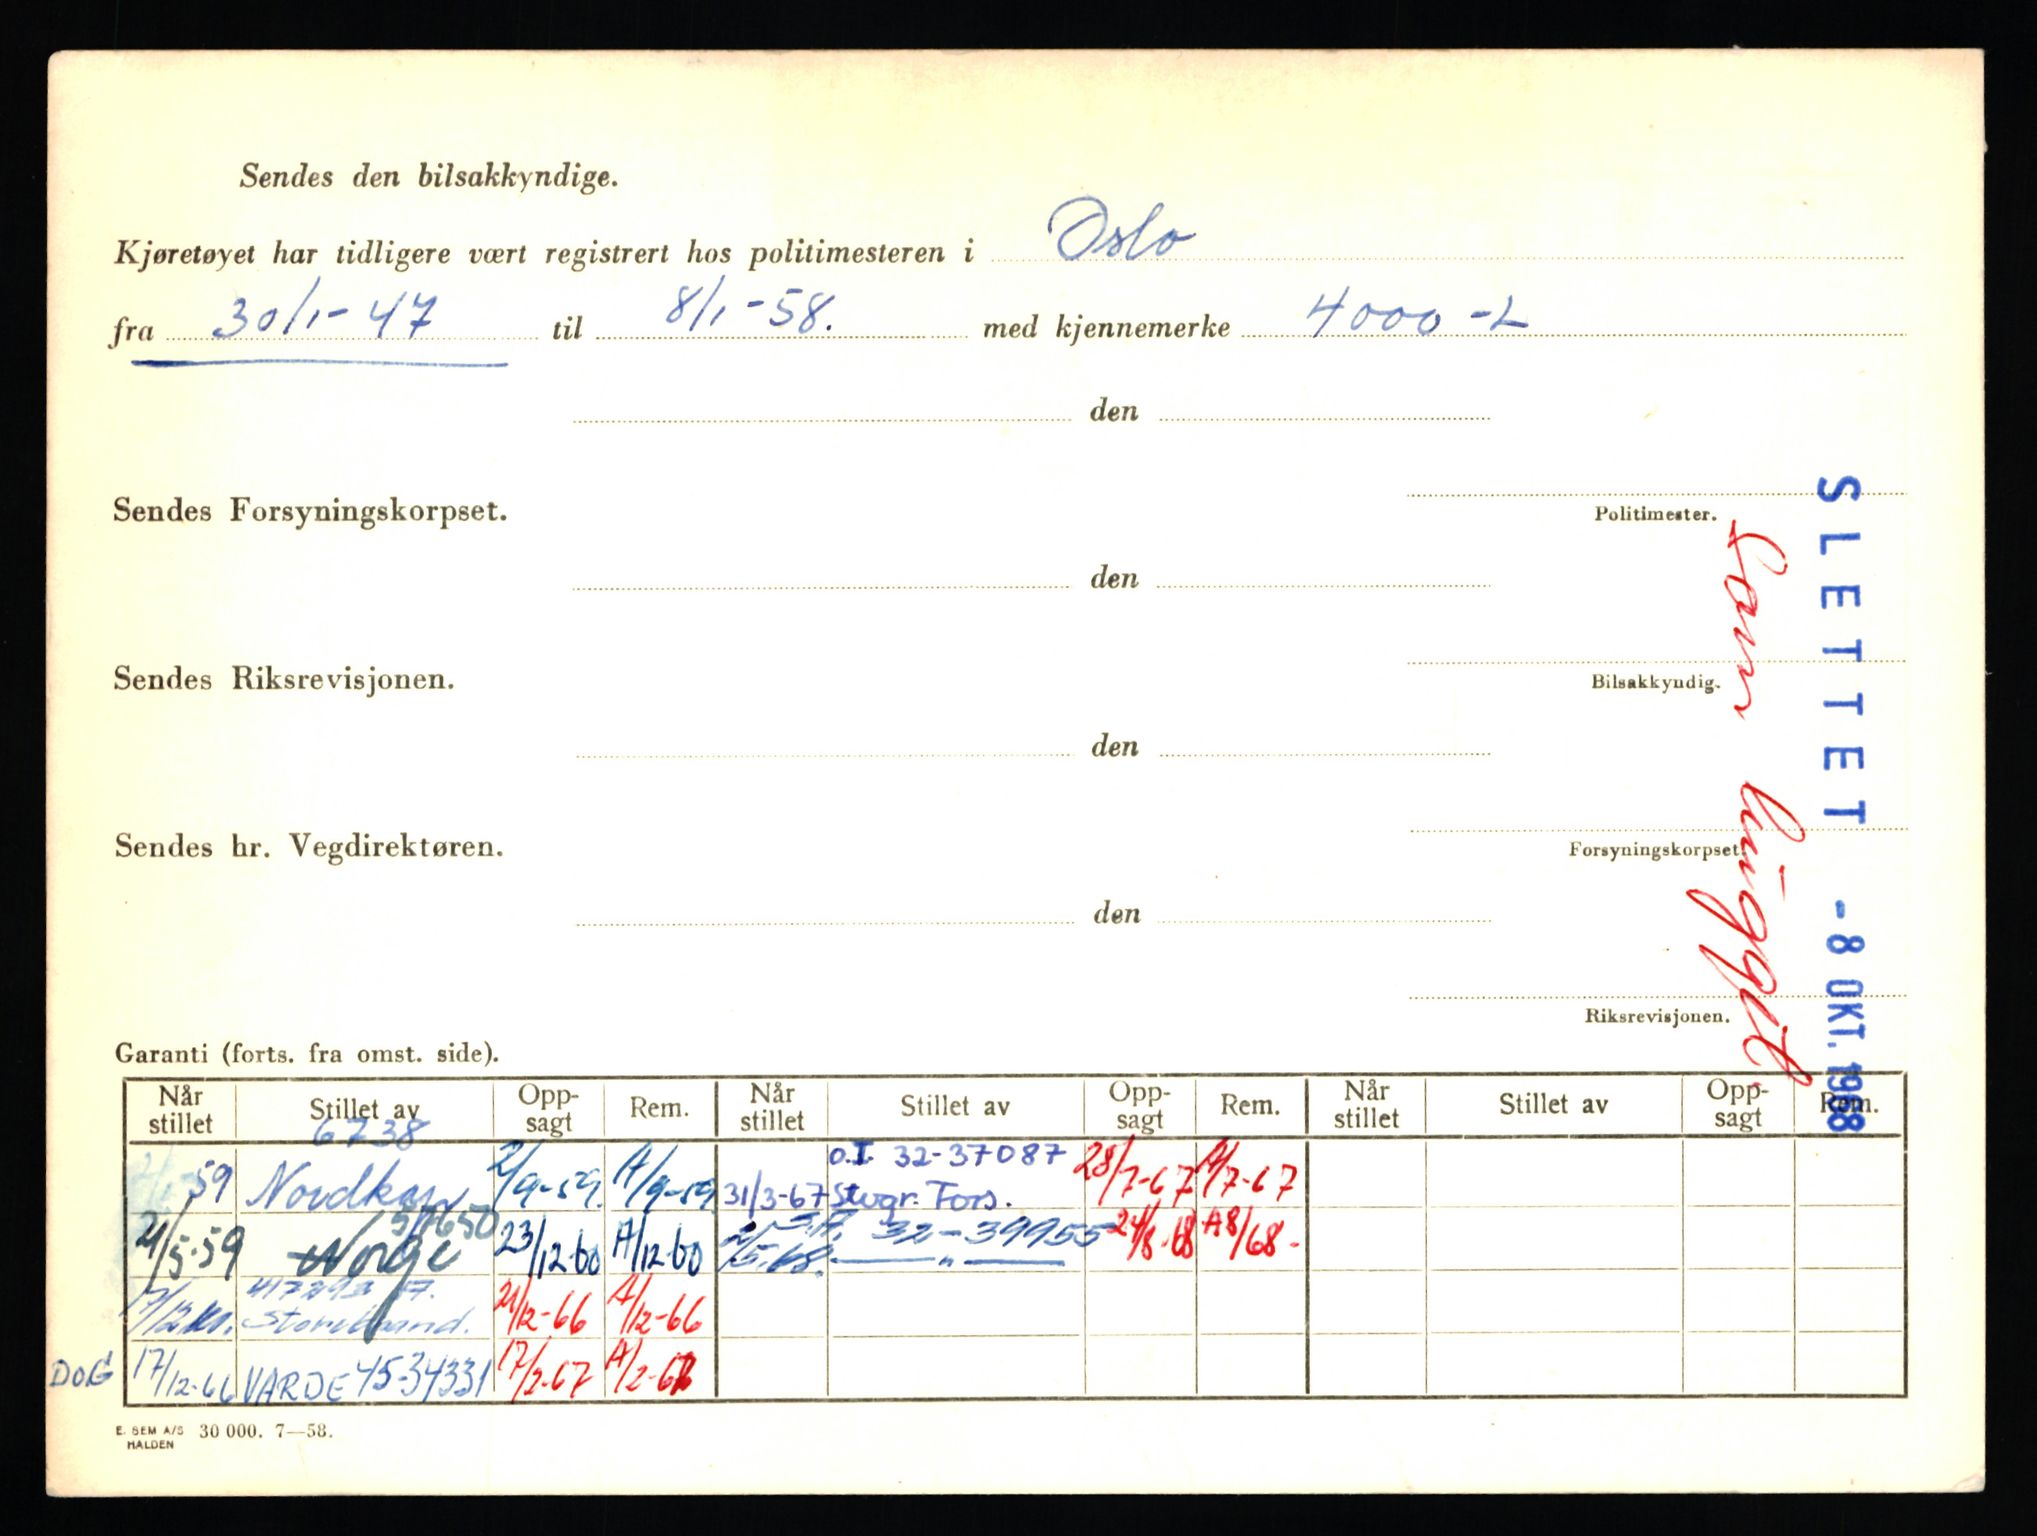 Sendes den bilsakkyndige.
Kjøretøyet har tidligere vært registrert hos politimesteren i Oslo
fra 30/1-47 til 8/1-58. med kjennemerke 4000-L
den
Sendes Forsyningskorpset.
Politimester.
den
Sendes Riksrevisjonen.
Bilsakkyndig.
den
Sendes hr. Vegdirektøren.
Forsyningskorpset.
den
Riksrevisjonen.
SLETTET -8 OKT. 1968
Garanti (forts. fra omst. side).
Når stillet Stillet av Opp-sagt Rem. Når stillet Stillet av Opp-sagt Rem. Når stillet Stillet av Opp-sagt Rem.
6738 o.I. 32-37087
59 2/9-59. A/9-59 31/3-67 Fors. 28/7-67 A/7-67
21/5-59 Norge 23/12-60 A/12-60 2/5.68. 32-39955 24/8-68 A8/68-
17/12 Storebrand. 21/12-66 A/12-66
DOG 17/12-66 VARDE 45-34331 17/2-67 A/2-67
E. SEM A/S HALDEN 30 000. 7—58.